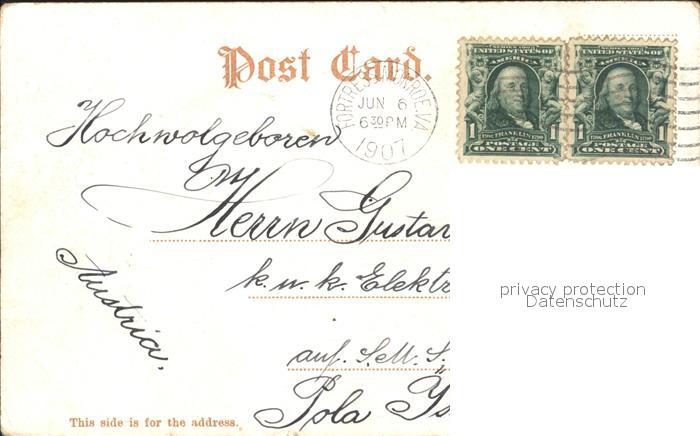 Post Card.
FORTRESS MONROE, VA.
JUN 6
6 30 PM
1907
SERIES 1902
UNITED STATES OF
AMERICA
1 FRANKLIN 1
POSTAGE
ONE CENT
SERIES 1902
UNITED STATES OF
AMERICA
1 FRANKLIN 1
POSTAGE
ONE CENT
Hochwolgeboren
Herrn Gustav
k. u. k. Elektr
auf. S.M.S.
Pola
Austria.
privacy protection
Datenschutz
This side is for the address.